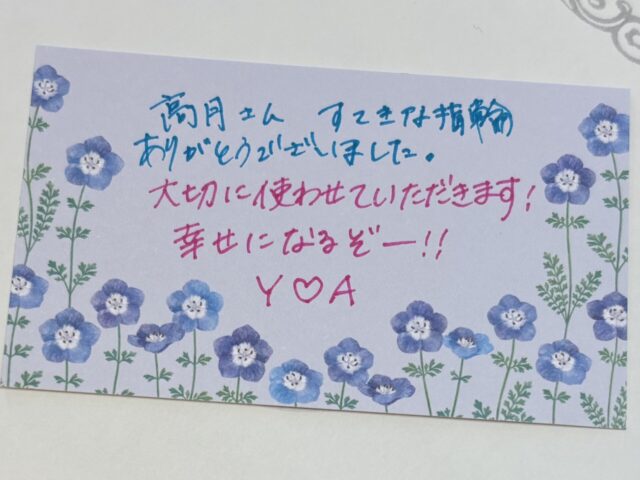 高月さん すてきな指輪
ありがとうございました。
大切に使わせていただきます!
幸せになるぞー!!
Y♡A